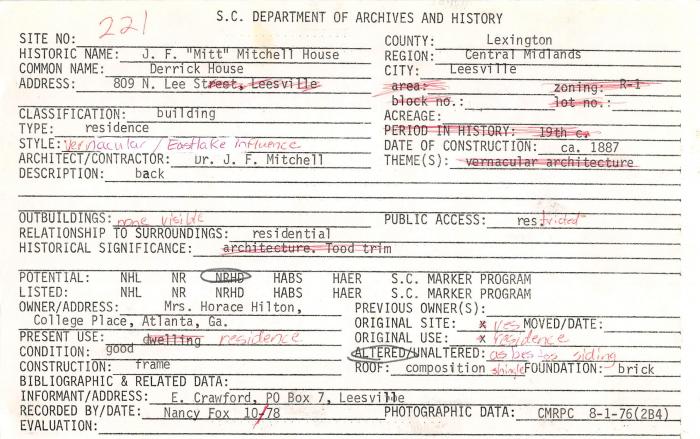 S.C. DEPARTMENT OF ARCHIVES AND HISTORY
221
SITE NO:
COUNTY: Lexington
HISTORIC NAME: J. F. "Mitt" Mitchell House
REGION: Central Midlands
COMMON NAME: Derrick House
CITY: Leesville
ADDRESS: 809 N. Lee Street, Leesville
area: zoning: R-1
block no.: lot no.:
CLASSIFICATION: building
ACREAGE:
TYPE: residence
PERIOD IN HISTORY: 19th c.
STYLE: Vernacular / Eastlake Influence
DATE OF CONSTRUCTION: ca. 1887
ARCHITECT/CONTRACTOR: Dr. J. F. Mitchell
THEME(S): vernacular architecture
DESCRIPTION: back
OUTBUILDINGS: none visible
PUBLIC ACCESS: restricted
RELATIONSHIP TO SURROUNDINGS: residential
HISTORICAL SIGNIFICANCE: architecture. Tood trim
POTENTIAL: NHL NR NRHD HABS HAER S.C. MARKER PROGRAM
LISTED: NHL NR NRHD HABS HAER S.C. MARKER PROGRAM
OWNER/ADDRESS: Mrs. Horace Hilton,
College Place, Atlanta, Ga.
PREVIOUS OWNER(S):
ORIGINAL SITE: x yes MOVED/DATE:
PRESENT USE: dwelling residence
ORIGINAL USE: x residence
CONDITION: good
ALTERED/UNALTERED: asbestos siding
CONSTRUCTION: frame
ROOF: composition shingle FOUNDATION: brick
BIBLIOGRAPHIC & RELATED DATA:
INFORMANT/ADDRESS: E. Crawford, PO Box 7, Leesville
RECORDED BY/DATE: Nancy Fox 10/78
PHOTOGRAPHIC DATA: CMRPC 8-1-76(2B4)
EVALUATION: